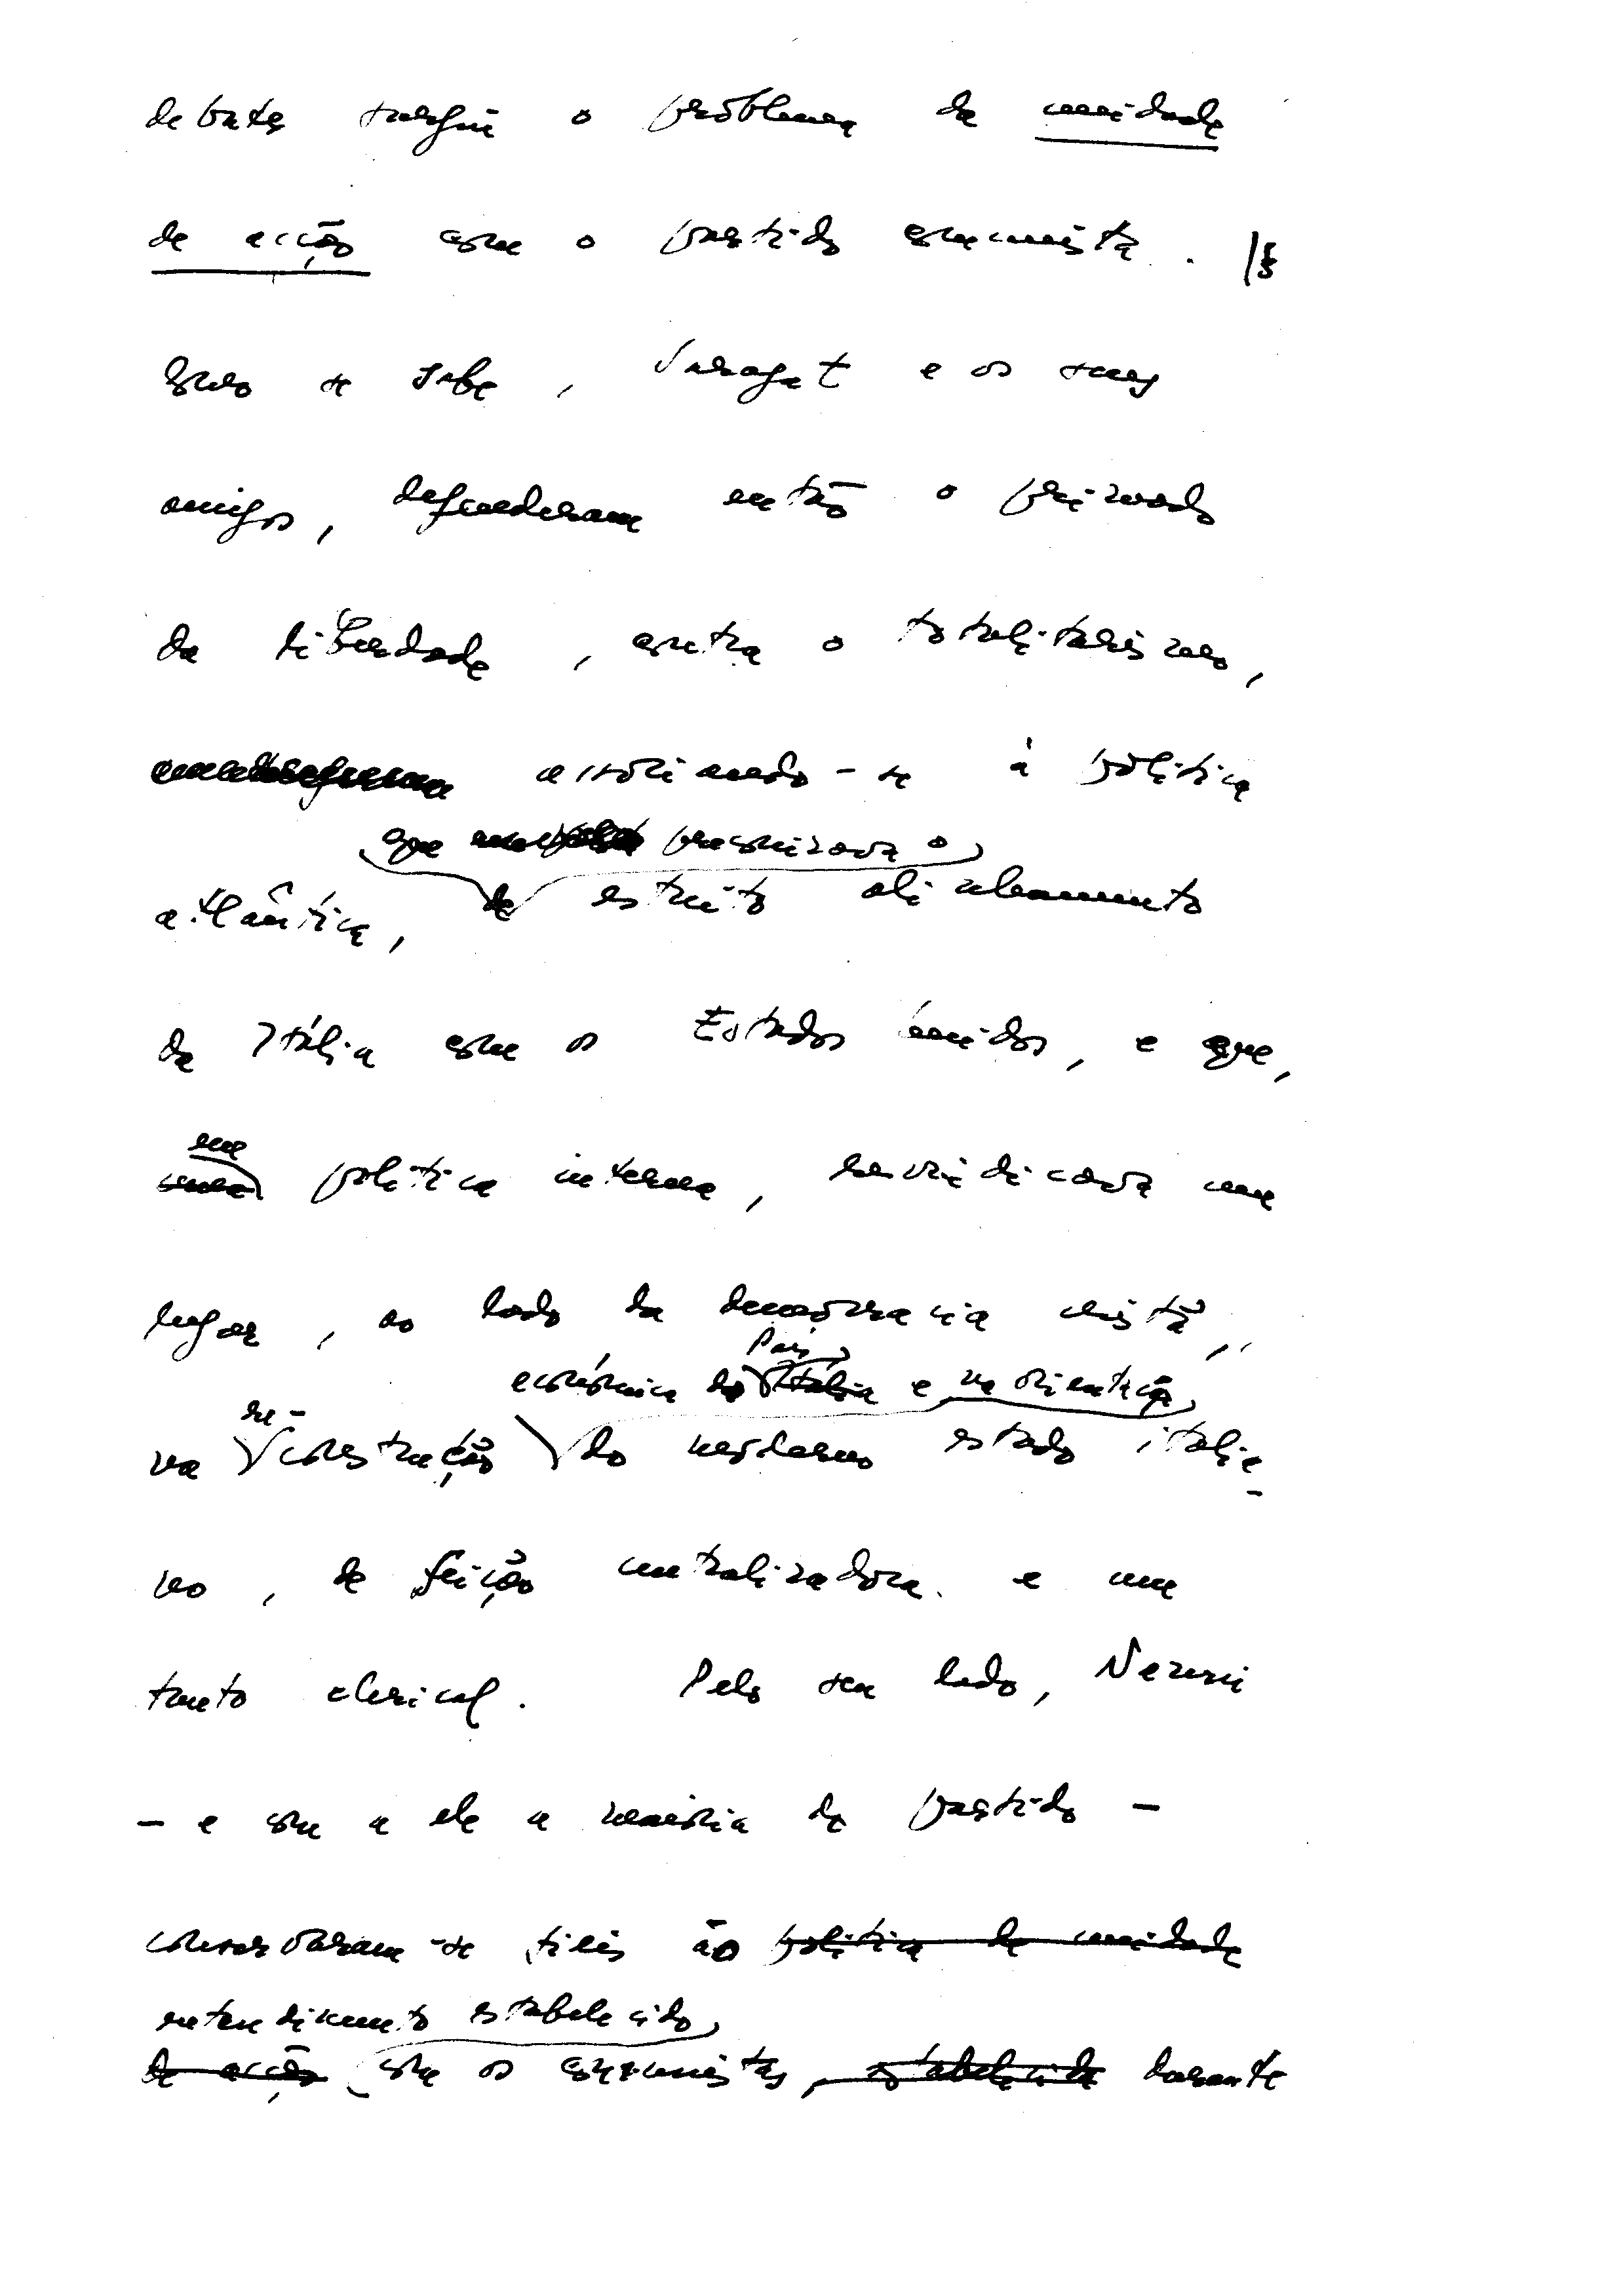 debates surgiu o problema da unidade
de acção com o partido comunista.
Como se sabe, Saragat e os seus
amigos, defenderam então o primado
da liberdade, contra o totalitarismo,
associando-se à política
que preconizava o
atlântica, de estreito alinhamento
da Itália com os Estados Unidos, e que,
em
política interna, reivindicava um
lugar, ao lado da democracia cristã,
País
económica do Itália e na orientação
re-
na construção do moderno estado italia-
no, de feição centralizadora e um
tanto clerical. Pelo seu lado, Nenni
- e com a ele a maioria do partido -
conservaram-se fiéis ao política de unidade
entendimento estabelecido
de acção com os comunistas, estabelecida durante